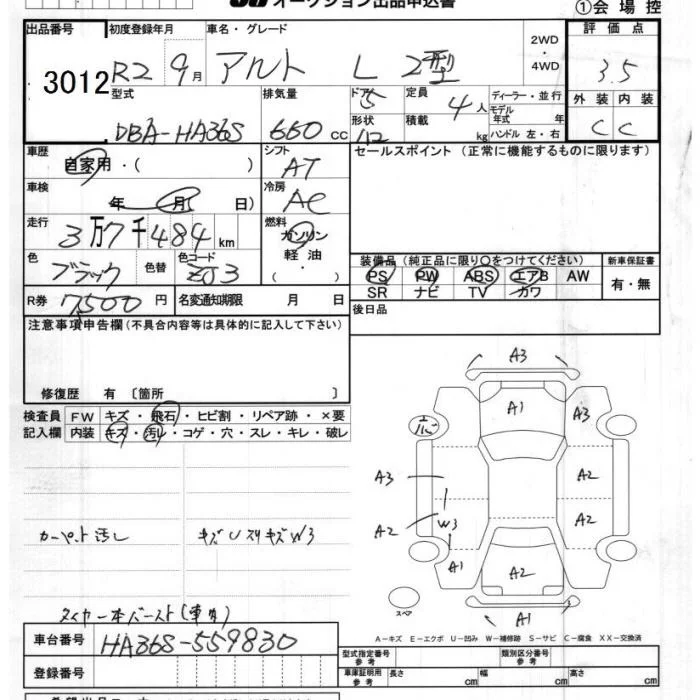 オークション出品申込書 ①会場控
出品番号 初度登録年月 車名・グレード 2WD・4WD 評価点
3012 R2 9月 アルト L 2型 3.5
型式 排気量 ドア 定員 ディーラー・並行 外装 内装
DBA-HA36S 660cc 5 4人 モデル年式 年 C C
形状 積載 kg ハンドル 左・右
車歴 シフト セールスポイント (正常に機能するものに限ります)
自家用・( ) AT
車検 冷房
年 月 日) AC
走行 燃料
3万7千484km ガソリン
軽油
・( )
色 色替 色コード 装備品 (純正品に限り○をつけてください) 新車保証書
ブラック ZJ3 PS PW ABS エアB AW 有・無
SR ナビ TV カワ
R券 7,500円 名変通知期限 月 日 後日品
注意事項申告欄 (不具合内容等は具体的に記入して下さい)
修復歴 有 〔箇所 〕
検査員 FW キズ・飛石・ヒビ割・リペア跡・×要
記入欄 内装 キズ・汚レ・コゲ・穴・スレ・キレ・破レ
A3
A1 A3
A3 A2
A2 W3 A2
A1 A2
A1
スペア
カーペット汚し キズUスリキズW3
タイヤ一本バースト(車内)
A-キズ E-エクボ U-凹み W-補修跡 S-サビ C-腐食 XX-交換済
車台番号 HA36S-559830
登録番号
型式指定番号 参考 類別区分番号 参考
車庫証明用 参考 長さ cm 幅 cm 高さ cm